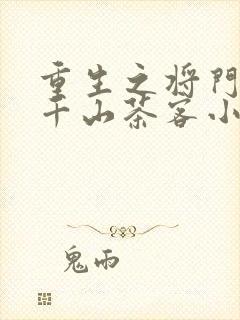 重生之将门
千山茶客小
鬼雨